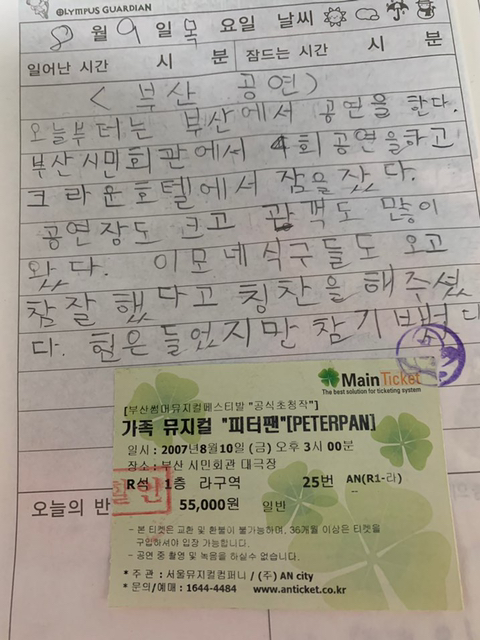 OLYMPUS GUARDIAN
8월 9일 목요일 날씨
일어난 시간 시 분 잠드는 시간 시 분
< 부산 공연 >
오늘부터는 부산에서 공연을 한다.
부산시민회관에서 4회 공연을하고
크라운호텔에서 잠을 잤다.
공연장도 크고 관객도 많이
왔다. 이모네식구들도 오고
참잘 했다고 칭찬을 해주셨
다. 힘은 들었지만 참 기뻤다
MainTicket
The best solution for ticketing system
[부산썸머뮤지컬페스티발 "공식초청작"]
가족 뮤지컬 "피터팬"[PETERPAN]
일시 : 2007년8월10일 (금) 오후 3시 00분
장소 : 부산 시민회관 대극장
R석 1층 라구역 25번 AN(R1-라)
할인
55,000원 일반
오늘의 반
- 본 티켓은 교환 및 환불이 불가능하며, 36개월 이상은 티켓을
구입하셔야 입장 가능합니다.
- 공연 중 촬영 및 녹음을 하실수 없습니다.
* 주 관 : 서울뮤지컬컴퍼니 / (주) AN city
* 문의/예매 : 1644-4484 www.anticket.co.kr